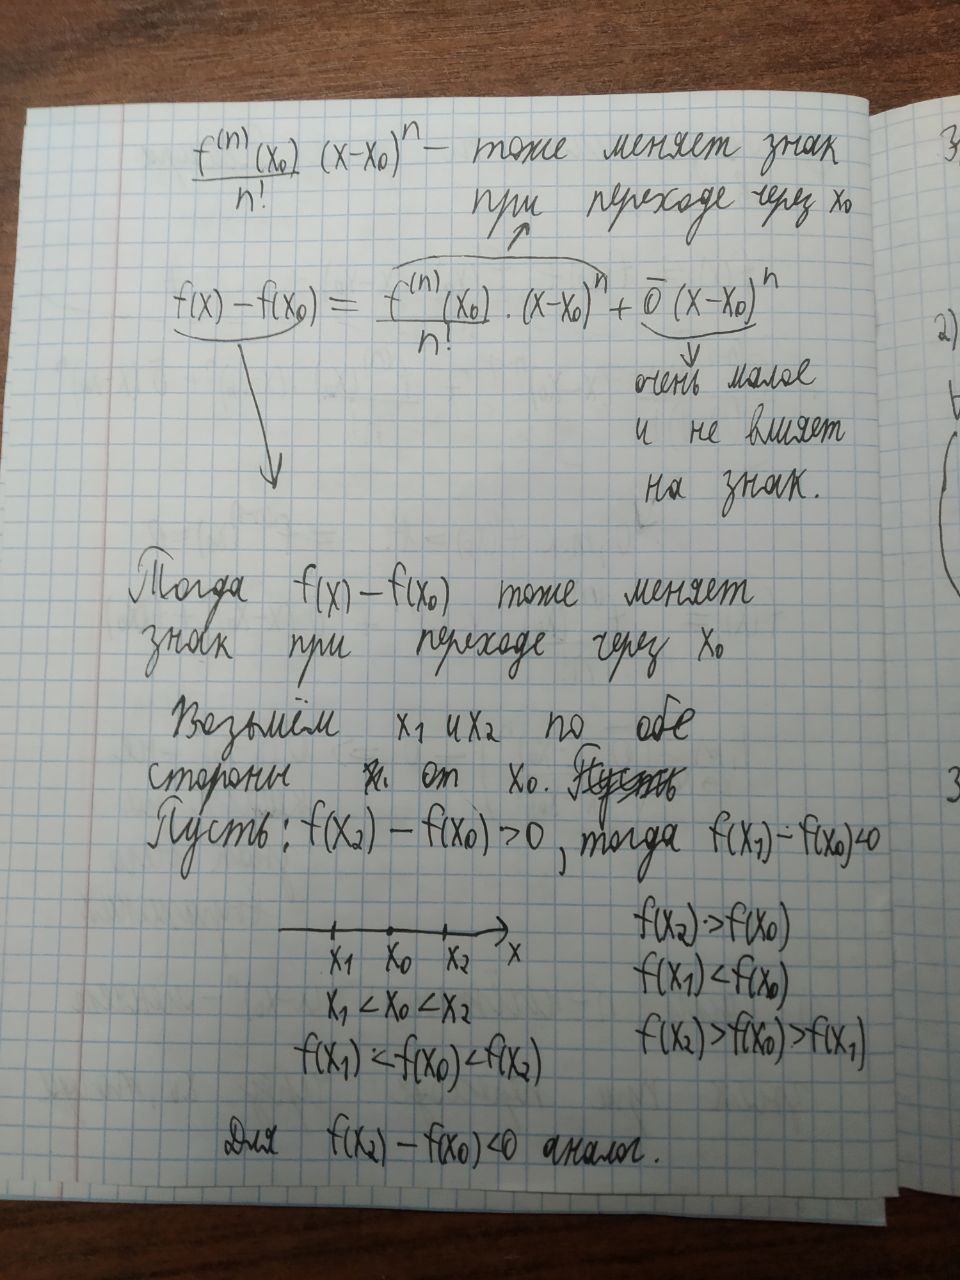 f⁽ⁿ⁾(x₀)/n! (x-x₀)ⁿ – тоже меняет знак
при переходе через x₀
f(x) – f(x₀) = f⁽ⁿ⁾(x₀)/n! · (x-x₀)ⁿ + ō(x-x₀)ⁿ
очень малое
и не влияет
на знак.
Тогда f(x) – f(x₀) тоже меняет
знак при переходе через x₀
Возьмём x₁ и x₂ по обе
стороны от x₀.
Пусть: f(x₂) – f(x₀) > 0, тогда f(x₁) – f(x₀) < 0
x₁ x₀ x₂ x
x₁ < x₀ < x₂
f(x₁) < f(x₀) < f(x₂)
f(x₂) > f(x₀)
f(x₁) < f(x₀)
f(x₂) > f(x₀) > f(x₁)
Для f(x₂) – f(x₀) < 0 аналог.
3
2)
3